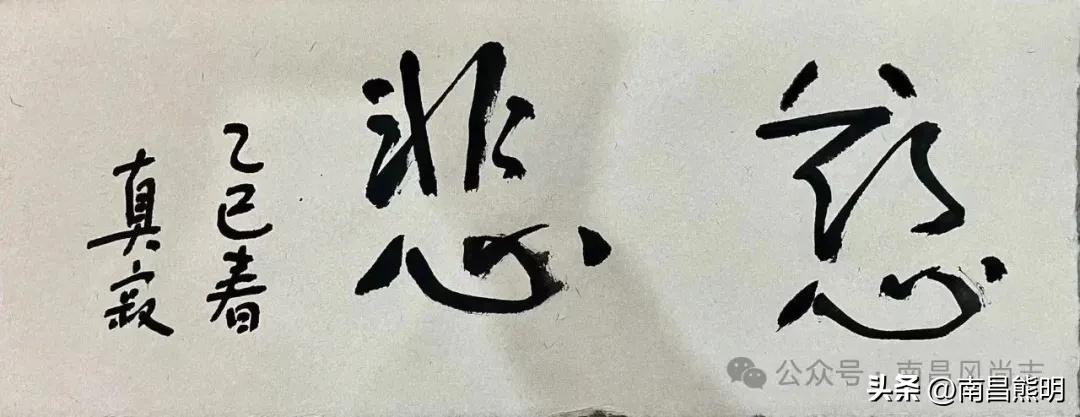 慈悲
乙巳春
真寂
公众号·南昌风尚志
头条@南昌熊明